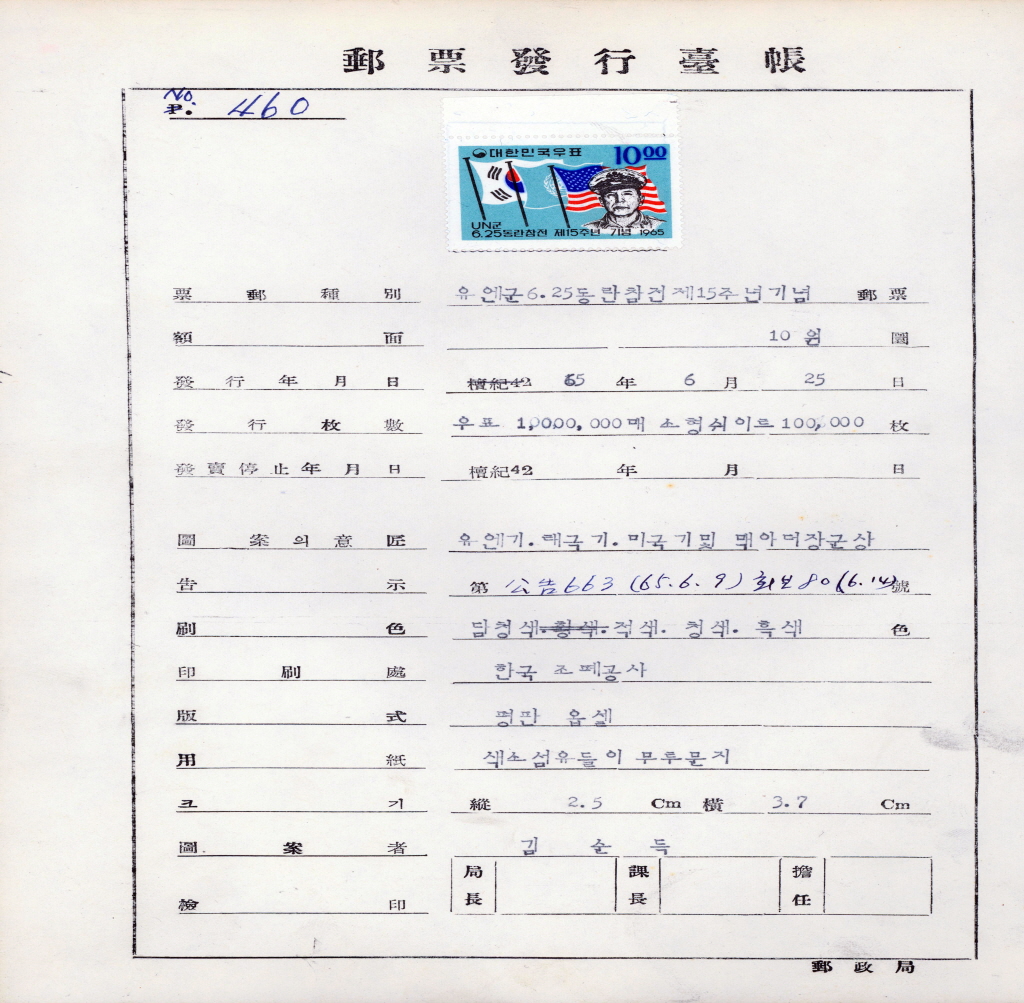 郵票發行臺帳
No.
P. 460
대한민국우표 10 00
UN군
6.25동란참전 제15주년 기념 1965
票郵種別 유엔군6.25동란참전제15주년기념 郵票
額面 10 원 圜
發行年月日 檀紀42 65 年 6 月 25 日
發行枚數 우표 1,0000,000매 소형쉬이트 100,000 枚
發賣停止年月日 檀紀42 年 月 日
圖案의意匠 유엔기.태극기.미국기및 맥아더장군상
告示 第 公告663 (65.6.9) 회보80 (6.14) 號
刷色 담청색.황색.적색. 청색. 흑색 色
印刷處 한국 조폐공사
版式 평판 옵셑
用紙 색소섬유들이 무루문지
크기 縱 2.5 Cm 橫 3.7 Cm
圖案者 김순득
檢印 局長 課長 擔任
郵政局